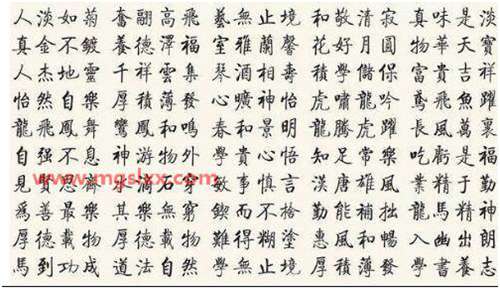 人淡如菊 奮翮高飛 藝無止境 和敬清寂 真味是淡
真金不鍍 養德澤福 室雅蘭馨 花好月圓 物華天寶
人杰地靈 千祥雲集 琴酒相壽 學儲保 富貴吉祥
怡然自樂 厚積薄發 曠神怡 虎嘯龍吟 鳶飛魚躍
龍飛鳳舞 鸞鳳和鳴 春和景明 龍騰虎躍 長風萬裏
自强不息 神游物外 學貴心悟 知足常樂 吃虧是福
見賢思齊 滴石穿 事慎言 漢唐雄風 業精于勤
爲善最樂 其樂無窮 鍥而不捨 勤能補拙 龍馬精神
厚德載物 厚德載物 難得糊塗 惠風和暢 入幽出朗
馬到功成 道法自然 學無止境 厚積薄發 學書養志
www.mgslxx.com